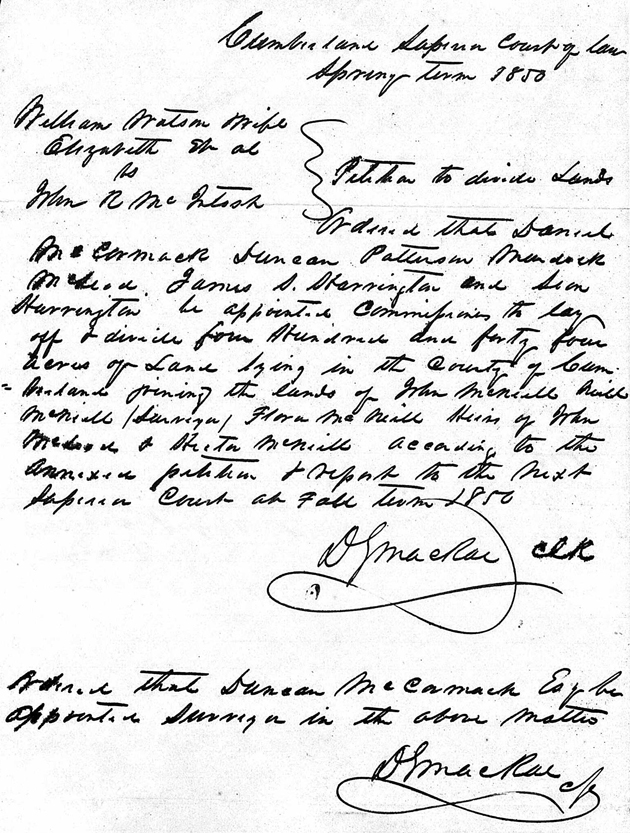 Cumberland Superior Court of law
Spring term 1850
William Watson Wife
Elizabeth et al
to
John R McIntosh
Petition to divide Lands
Ordered that Daniel
McCormack Duncan Patterson Murdock
McLeod James S. Harrington and Sion
Harrington be appointed Commissioners to lay
off & divide four Hundred and forty four
acres of Land lying in the County of Cum-
berland joining the lands of John McNeill Neill
McNeill (Surveyor) Flora McNeill Heirs of John
McLeod & Hector McNeill according to the
annexed petition & report to the next
Superior Court at Fall term 1850
D G MacRae clk
Ordered that Duncan McCormack Esq be
appointed Surveyor in the above matter
D G MacRae clk